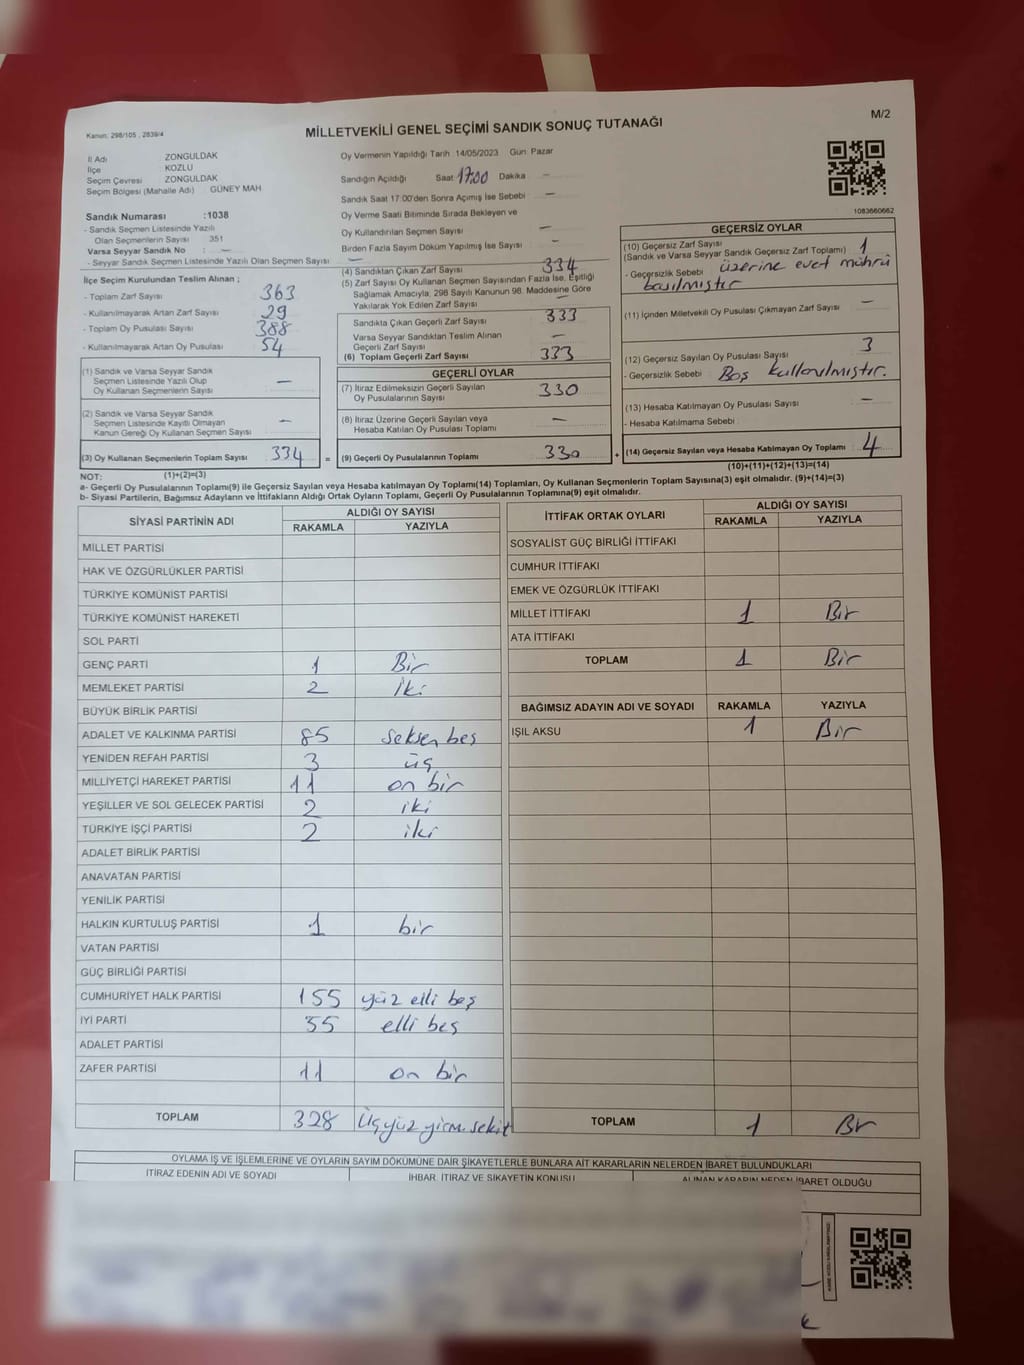 Kanun: 298/105 , 2839/4
MİLLETVEKİLİ GENEL SEÇİMİ SANDIK SONUÇ TUTANAĞI
M/2
İl Adı ZONGULDAK
İlçe KOZLU
Seçim Çevresi ZONGULDAK
Seçim Bölgesi (Mahalle Adı) GÜNEY MAH
Sandık Numarası :1038
- Sandık Seçmen Listesinde Yazılı
Olan Seçmenlerin Sayısı 351
Varsa Seyyar Sandık No : —
- Seyyar Sandık Seçmen Listesinde Yazılı Olan Seçmen Sayısı —
İlçe Seçim Kurulundan Teslim Alınan ;
- Toplam Zarf Sayısı 363
- Kullanılmayarak Artan Zarf Sayısı 29
- Toplam Oy Pusulası Sayısı 388
- Kullanılmayarak Artan Oy Pusulası 54
(1) Sandık ve Varsa Seyyar Sandık
Seçmen Listesinde Yazılı Olup
Oy Kullanan Seçmenlerin Sayısı —
(2) Sandık ve Varsa Seyyar Sandık
Seçmen Listesinde Kayıtlı Olmayan
Kanun Gereği Oy Kullanan Seçmen Sayısı —
(3) Oy Kullanan Seçmenlerin Toplam Sayısı 334 =
(1)+(2)=(3)
Oy Vermenin Yapıldığı Tarih 14/05/2023 Gün Pazar
Sandığın Açıldığı Saat 17:00 Dakika —
Sandık Saat 17:00'den Sonra Açımış İse Sebebi —
Oy Verme Saati Bitiminde Sırada Bekleyen ve
Oy Kullandırılan Seçmen Sayısı —
Birden Fazla Sayım Döküm Yapılmış İse Sayısı —
(4) Sandıktan Çıkan Zarf Sayısı 334
(5) Zarf Sayısı Oy Kullanan Seçmen Sayısından Fazla İse, Eşitliği
Sağlamak Amacıyla; 298 Sayılı Kanunun 98. Maddesine Göre
Yakılarak Yok Edilen Zarf Sayısı —
Sandıkta Çıkan Geçerli Zarf Sayısı 333
Varsa Seyyar Sandıktan Teslim Alınan
Geçerli Zarf Sayısı —
(6) Toplam Geçerli Zarf Sayısı 333
GEÇERLİ OYLAR
(7) İtiraz Edilmeksizin Geçerli Sayılan
Oy Pusulalarının Sayısı 330
(8) İtiraz Üzerine Geçerli Sayılan veya
Hesaba Katılan Oy Pusulası Toplamı —
(9) Geçerli Oy Pusulalarının Toplamı 330 +
1083660662
GEÇERSİZ OYLAR
(10) Geçersiz Zarf Sayısı 1
(Sandık ve Varsa Seyyar Sandık Geçersiz Zarf Toplamı)
- Geçersizlik Sebebi üzerine evet mührü
basılmıştır
(11) İçinden Milletvekili Oy Pusulası Çıkmayan Zarf Sayısı —
(12) Geçersiz Sayılan Oy Pusulası Sayısı 3
- Geçersizlik Sebebi Boş kullanılmıştır.
(13) Hesaba Katılmayan Oy Pusulası Sayısı —
- Hesaba Katılmama Sebebi
(14) Geçersiz Sayılan veya Hesaba Katılmayan Oy Toplamı 4
(10)+(11)+(12)+(13)=(14)
NOT:
a- Geçerli Oy Pusulalarının Toplamı(9) ile Geçersiz Sayılan veya Hesaba katılmayan Oy Toplamı(14) Toplamları, Oy Kullanan Seçmenlerin Toplam Sayısına(3) eşit olmalıdır. (9)+(14)=(3)
b- Siyasi Partilerin, Bağımsız Adayların ve İttifakların Aldığı Ortak Oyların Toplamı, Geçerli Oy Pusulalarının Toplamına(9) eşit olmalıdır.
SİYASİ PARTİNİN ADI ALDIĞI OY SAYISI
RAKAMLA YAZIYLA
MİLLET PARTİSİ
HAK VE ÖZGÜRLÜKLER PARTİSİ
TÜRKİYE KOMÜNİST PARTİSİ
TÜRKİYE KOMÜNİST HAREKETİ
SOL PARTİ
GENÇ PARTİ 1 Bir
MEMLEKET PARTİSİ 2 iki
BÜYÜK BİRLİK PARTİSİ
ADALET VE KALKINMA PARTİSİ 85 seksen beş
YENİDEN REFAH PARTİSİ 3 üç
MİLLİYETÇİ HAREKET PARTİSİ 11 on bir
YEŞİLLER VE SOL GELECEK PARTİSİ 2 iki
TÜRKİYE İŞÇİ PARTİSİ 2 iki
ADALET BİRLİK PARTİSİ
ANAVATAN PARTİSİ
YENİLİK PARTİSİ
HALKIN KURTULUŞ PARTİSİ 1 bir
VATAN PARTİSİ
GÜÇ BİRLİĞİ PARTİSİ
CUMHURİYET HALK PARTİSİ 155 yüz elli beş
İYİ PARTİ 55 elli beş
ADALET PARTİSİ
ZAFER PARTİSİ 11 on bir
TOPLAM 328 üçyüz yirmi sekiz
İTTİFAK ORTAK OYLARI ALDIĞI OY SAYISI
RAKAMLA YAZIYLA
SOSYALİST GÜÇ BİRLİĞİ İTTİFAKI
CUMHUR İTTİFAKI
EMEK VE ÖZGÜRLÜK İTTİFAKI
MİLLET İTTİFAKI 1 Bir
ATA İTTİFAKI
TOPLAM 1 Bir
BAĞIMSIZ ADAYIN ADI VE SOYADI RAKAMLA YAZIYLA
IŞIL AKSU 1 Bir
TOPLAM 1 Bir
OYLAMA İŞ VE İŞLEMLERİNE VE OYLARIN SAYIM DÖKÜMÜNE DAİR ŞİKAYETLERLE BUNLARA AİT KARARLARIN NELERDEN İBARET BULUNDUKLARI
İTİRAZ EDENİN ADI VE SOYADI İHBAR, İTİRAZ VE ŞİKAYETİN KONUSU ALINAN KARARIN NEDEN İBARET OLDUĞU